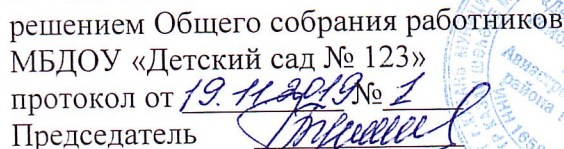 решением Общего собрания работников
МБДОУ «Детский сад № 123»
протокол от 19.11.2019 № 1
Председатель